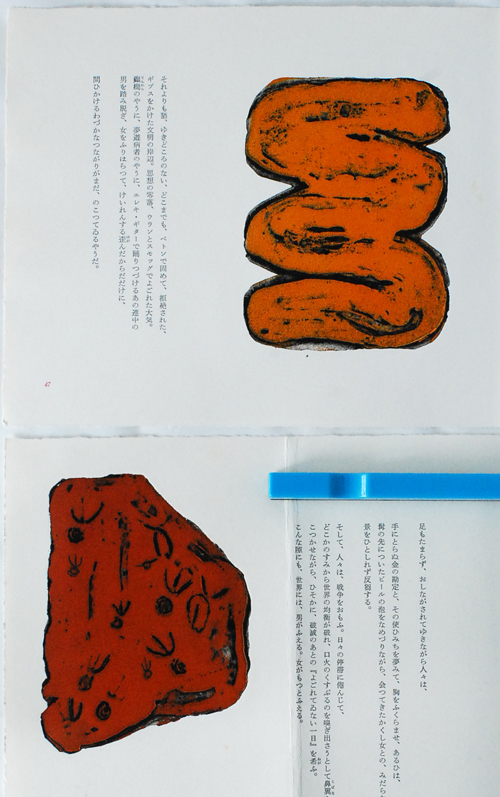 それよりも猶、ゆきどころのない、どこまでも、ベトンで固めて、拒絶された、
ギプスをかけた文明の岸辺。思想の零落、ウランとスモッグでよごれた大気。
のやうに、夢遊病者のやうに、エレキ・ギターで踊りつづけるあの連中の
男を踏み脱ぎ、女をふりはらつて、けいれんする歪んだからだだけに、
問ひかけるわづかなつながりがまだ、のこつてゐるやうだ。
47
足もたまらず、おしながされてゆきながら人々は、
手にとらぬ金の勘定と、その使ひみちを夢みて、胸をふくらませ、あるひは、
髭の先についたビールの泡をなめづりながら、会つてきたかくし女との、みだら
景をひとしれず反芻する。
そして、人々は、戦争をおもふ。日々の停滞に倦んじて、
どこかのすみから世界の均衡が破れ、口火のくすぶるのを嗅ぎ出さうとして鼻翼
こつかせながら、ひそかに、破滅のあとの『よごれてゐない一日』を希ふ。
こんな隙にも、世界には、男がふえる。女がもつとふえる。